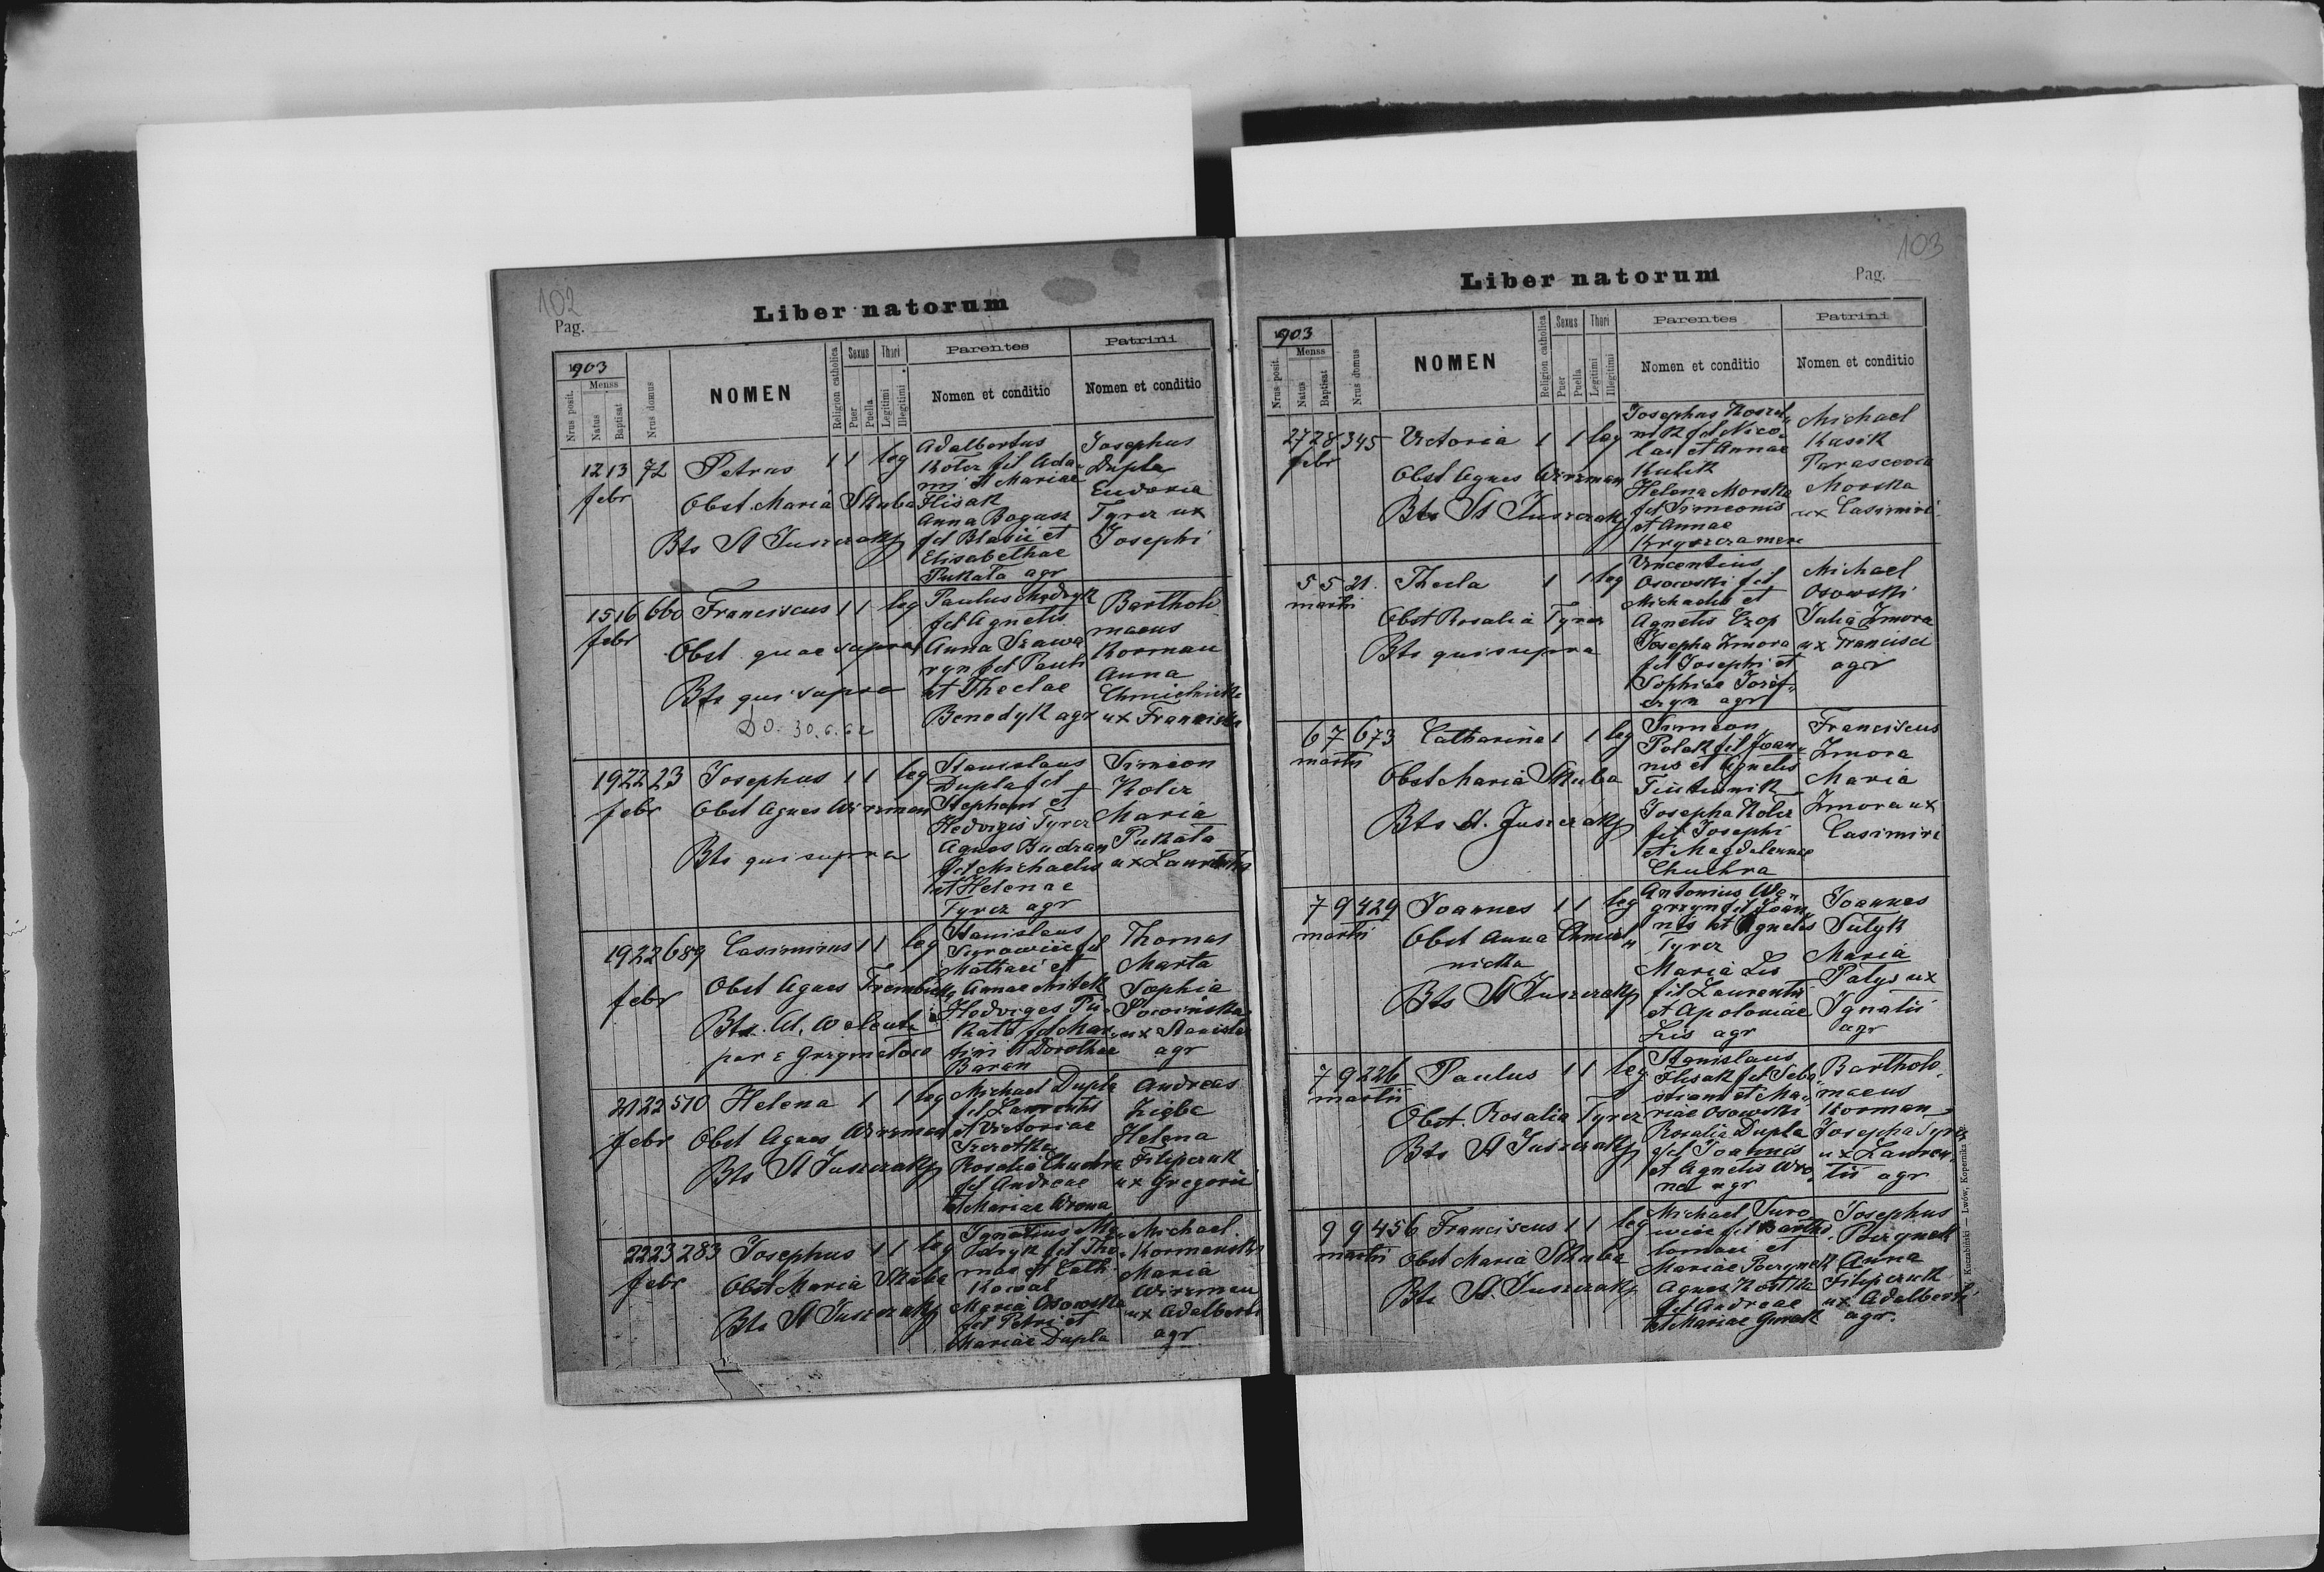 102
Pag.
Liber natorum
903
Menss
Nrus posit.
Natus
Baptisat
Nrus domus
NOMEN
Religion catholica
Sexus
Puer
Puella
Thori
Legitimi
Illegitimi
Parentes
Nomen et conditio
Patrini
Nomen et conditio
12 13 72 Petrus 1 1 leg
febr
Obst. Maria Skuba
Bts St Juszczak
Adalbertus
Kolcz fil Ada
mi et Mariae
Flisak
Anna Bogusz
fil Blasii et
Elisabethae
Pukala agr
Josephus
Dupla
Eudoxia
Tyrcz ux
Josephi
15 16 660 Franciscus 1 1 leg
febr
Obst quae supra
Bts qui supra
30.6.62
Paulus Mędryk
fil Agnetis
Anna Szawa
ryn fil Pauli
et Theclae
Benedyk agr
Bartholo
maeus
Korman
Anna
ux Francisci
19 22 23 Josephus 1 1 leg
febr
Obst Agnes Wirzman
Bts qui supra
Stanislaus
Dupla fil
Stephani et
Hedvigis Tyrcz
Agnes Budzan
fil Michaelis
et Helenae
Tyrcz agr
Simeon
Kolcz
Maria
Pukala
ux Laurentii
19 22 689 Casimirus 1 1 leg
febr
Obst Agnes
Bts. A.
par e Grzymałów
Stanislaus
fil
Mathaei et
Annae Mitek
Hedviges Pu
kala fil Mar
tini et Dorotheae
Baran
Thomas
Marta
Sophia
Sowinska
ux Stanislai
agr
21 22 510 Helena 1 1 leg
febr
Obst Agnes Wirzman
Bts St Juszczak
Michael Dupla
fil Laurentii
et Victoriae
Szczotka
Rosalia Chuchra
fil Andreae
et Mariae Wrona
Andreas
Zięba
Helena
Filipczuk
ux Gregorii
22 23 283 Josephus 1 1 leg
febr
Obst Maria Skuba
Bts St Juszczak
Ignatius Mę
dryk fil Tho
mae et Cath
Kowal
Maria Osowska
fil Petri et
Mariae Dupla
Michael
Kormanski
Maria
Wirzman
ux Adalberti
agr
103
Liber natorum
Pag.
903
Menss
Nrus posit.
Natus
Baptisat
Nrus domus
NOMEN
Religion catholica
Sexus
Puer
Puella
Thori
Legitimi
Illegitimi
Parentes
Nomen et conditio
Patrini
Nomen et conditio
27 28 345 Victoria 1 1 leg
febr
Obst Agnes Wirzman
Bts St Juszczak
Josephus
nik fil Nico
lai et Annae
Kulik
Helena Morska
fil Simeonis
et Annae
Michael
Kusik
Parascevia
Morska
ux Casimiri
5 5 21. Thecla 1 1 leg
martii
Obst Rosalia Tyrcz
Bts qui supra
Vincentius
Osowski fil
Michaelis et
Agnetis Czop
Josepha Zmora
fil Josephi et
Sophiae Josef
czyn agr
Michael
Osowski
Julia Zmora
ux Francisci
agr
6 7 673 Catharina 1 1 leg
martii
Obst Maria Skuba
Bts St. Juszczak
Simeon
Polak fil Joan
nis et Agnetis
Josepha Kolcz
fil Josephi
et Magdalenae
Chuchra
Franciscus
Zmora
Maria
Zmora ux
Casimiri
7 9 429 Joannes 1 1 leg
martii
Obst Anna Chmiel
nicka
Bts St Juszczak
Antonius Wę
grzyn fil Joan
nis et Agnetis
Tyrcz
Maria Lis
fil Laurentii
et Apoloniae
Lis agr
Joannes
Sutyk
Maria
Patys ux
Ignatii
agr
7 9 226 Paulus 1 1 leg
martii
Obst. Rosalia Tyrcz
Bts St Juszczak
Stanislaus
Flisak fil Seba
stiani et Ma
riae Osowski
Rosalia Dupla
fil Joannis
et Agnetis Wro
na agr
Bartholo
maeus
Korman
Josepha Tyrcz
ux Lauren
tii agr
9 9 456 Franciscus 1 1 leg
martii
Obst Maria Skuba
Bts St. Juszczak
Michael Suro
wiec fil Bartho
lomaei et
Mariae
Agnes Kostka
fil Andreae
et Mariae
Josephus
Anna
Filipczuk
ux Adalberti
agr.
Kuczabiński — Lwów, Kopernika